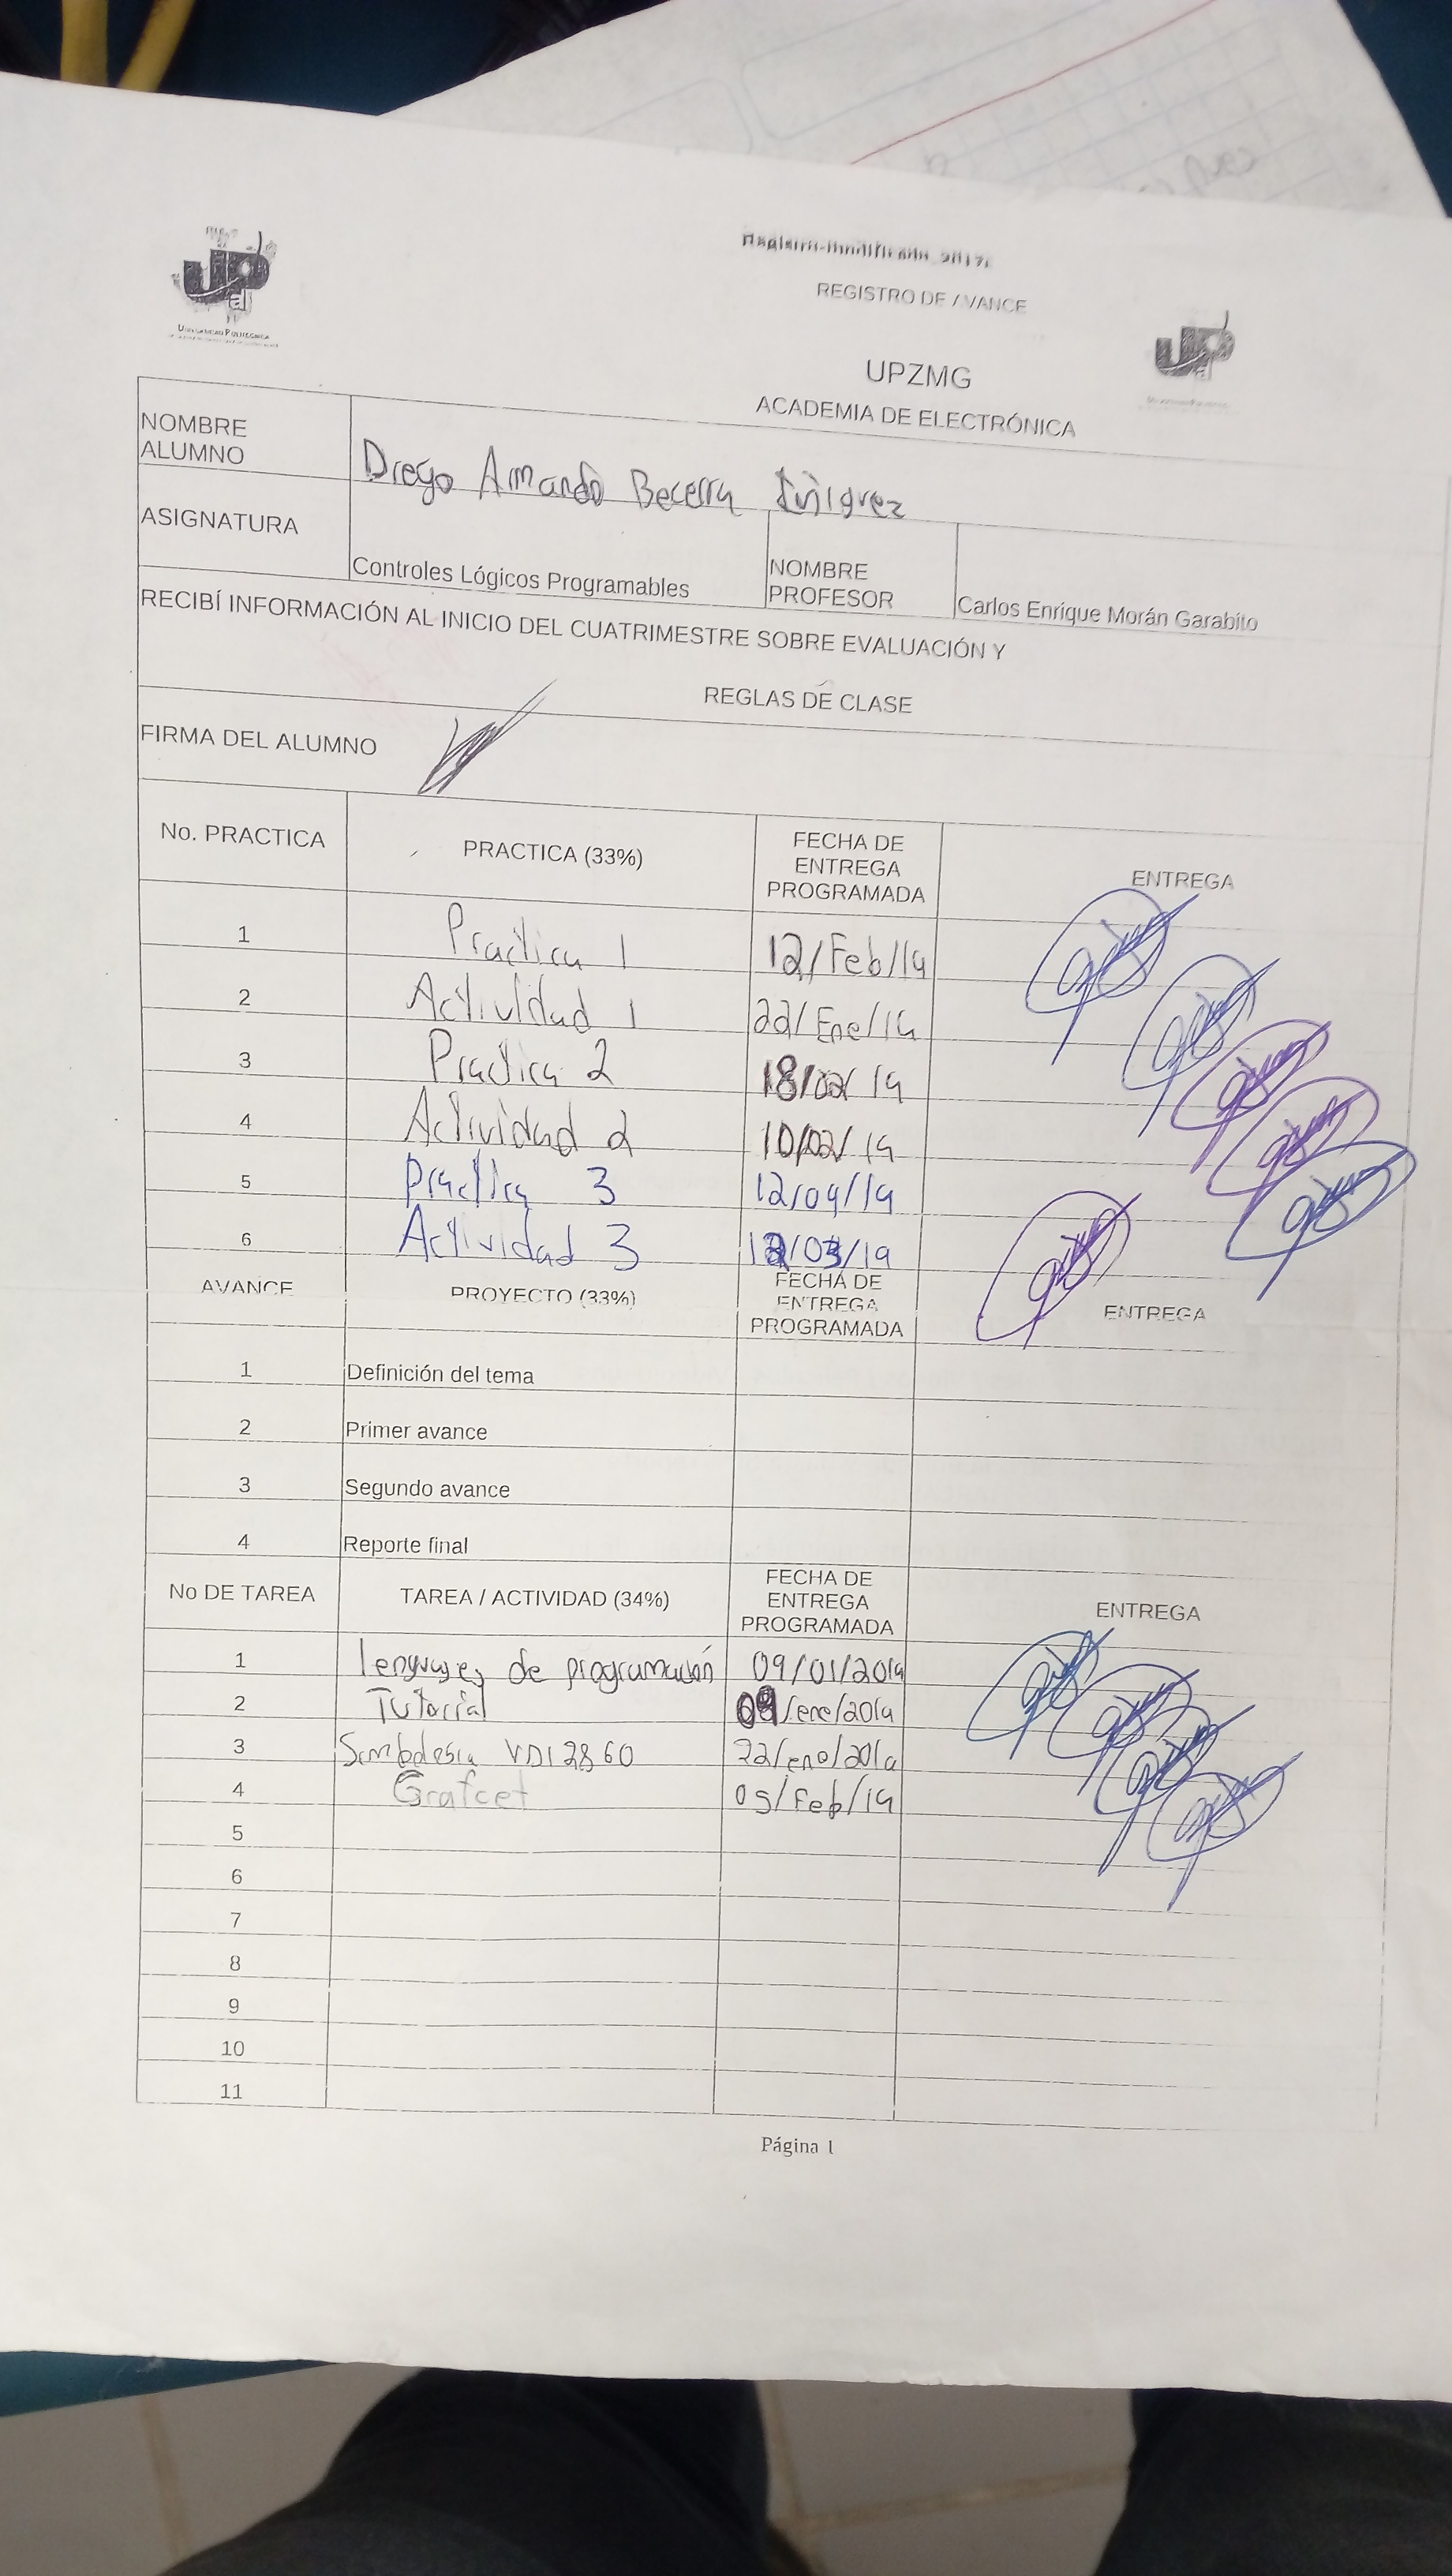 REGISTRO DE AVANCE
UPZMG
ACADEMIA DE ELECTRÓNICA
UNIVERSIDAD POLITÉCNICA
NOMBRE ALUMNO Diego Armando Becerra Iñiguez
ASIGNATURA Controles Lógicos Programables NOMBRE PROFESOR Carlos Enrique Morán Garabito
RECIBÍ INFORMACIÓN AL INICIO DEL CUATRIMESTRE SOBRE EVALUACIÓN Y
REGLAS DE CLASE
FIRMA DEL ALUMNO
No. PRACTICA PRACTICA (33%) FECHA DE ENTREGA PROGRAMADA ENTREGA
1 Practica 1 12/Feb/19
2 Actividad 1 22/Ene/19
3 Practica 2 18/02/19
4 Actividad 2 10/02/19
5 Practica 3 12/04/19
6 Actividad 3 /03/19
AVANCE PROYECTO (33%) FECHA DE ENTREGA PROGRAMADA ENTREGA
1 Definición del tema
2 Primer avance
3 Segundo avance
4 Reporte final
No DE TAREA TAREA / ACTIVIDAD (34%) FECHA DE ENTREGA PROGRAMADA ENTREGA
1 lenguajes de programación 09/01/2019
2 Tutorial 09/ene/2019
3 VDI 2860 22/ene/2019
4 Grafcet 05/Feb/19
5
6
7
8
9
10
11
Página 1